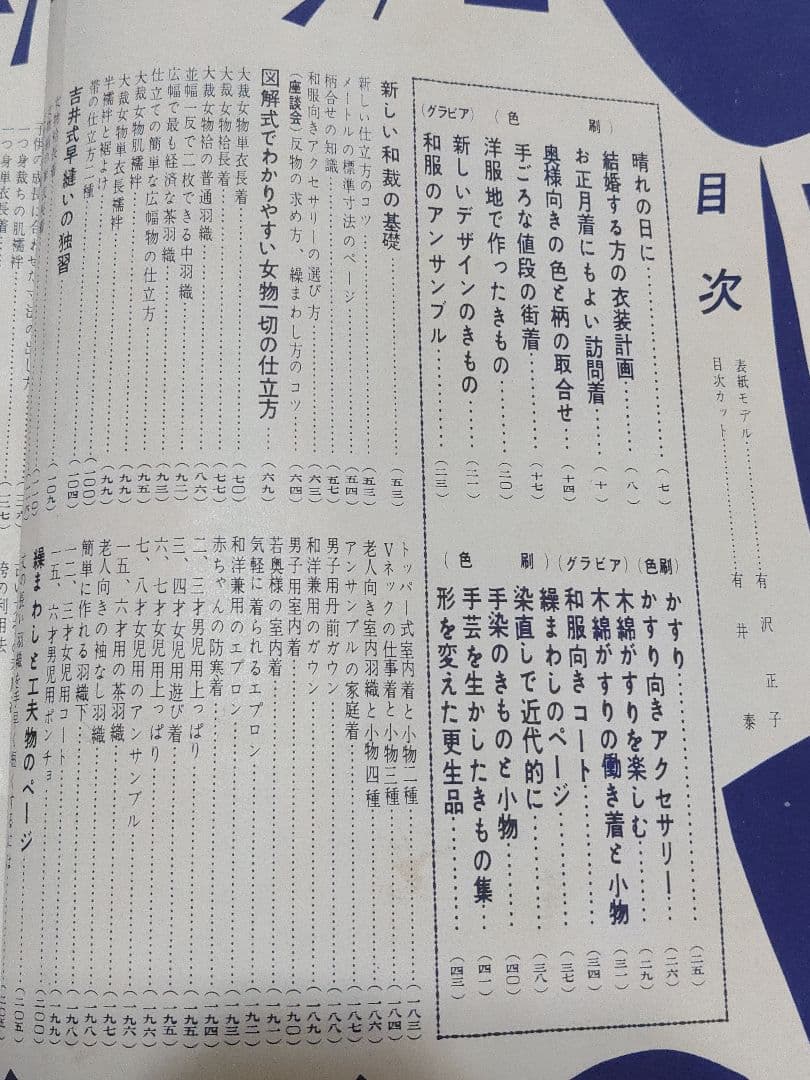 目次
表紙モデル…………有沢正子
目次カット…………有井泰
晴れの日に…………(七)
結婚する方の衣装計画…………(八)
お正月着にもよい訪問着…………(十)
(色刷)
奥様向きの色と柄の取合せ…………(十四)
手ごろな値段の街着…………(十七)
洋服地で作ったきもの…………(二〇)
新しいデザインのきもの…………(二一)
(グラビア)
和服のアンサンブル…………(二三)
かすり…………(二五)
(色刷)
かすり向きアクセサリー…………(二六)
木綿がすりを楽しむ…………(二九)
(グラビア)
木綿がすりの働き着と小物…………(三一)
和服向きコート…………(三四)
繰まわしのページ…………(三七)
染直しで近代的に…………(三八)
(色刷)
手染のきものと小物…………(四〇)
手芸を生かしたきもの集…………(四一)
形を変えた更生品…………(四三)
新しい和裁の基礎…………(五三)
新しい仕立方のコツ…………(五三)
メートルの標準寸法のページ…………(五四)
柄合せの知識…………(五七)
和服向きアクセサリーの選び方…………(六三)
(座談会)反物の求め方、繰まわし方のコツ…………(六四)
図解式でわかりやすい女物一切の仕立方…………(六九)
大裁女物単衣長着…………(七〇)
大裁女物袷長着…………(七七)
大裁女物袷の普通羽織…………(八六)
並幅一反で二枚できる中羽織…………(九二)
広幅で最も経済な茶羽織…………(九三)
仕立ての簡単な広幅物の仕立方…………(九五)
大裁女物肌襦袢…………(九九)
大裁女物単衣長襦袢…………(九九)
半襦袢と裾よけ…………(九九)
帯の仕立方二種…………(一〇〇)
吉井式早縫いの独習…………(一〇四)
(一〇九)
子供の成長に合わせた寸法の出し方…………(一一〇)
一つ身裁ちの肌襦袢
一つ身単衣長着…………(一二七)
トッパー式室内着と小物二種…………(一八三)
Vネックの仕事着と小物三種…………(一八四)
老人向き室内羽織と小物四種…………(一八六)
アンサンブルの家庭着…………(一八七)
男子用丹前ガウン…………(一八八)
和洋兼用のガウン…………(一八九)
男子用室内着…………(一九〇)
若奥様の室内着…………(一九一)
気軽に着られるエプロン…………(一九二)
和洋兼用のエプロン…………(一九三)
赤ちゃんの防寒着…………(一九四)
二、三才男児用上っぱり…………(一九五)
三、四才女児用遊び着…………(一九五)
六、七才女児用上っぱり…………(一九六)
七、八才女児用のアンサンブル…………(一九六)
一五、六才用の茶羽織…………(一九六)
老人向きの袖なし羽織…………(一九七)
簡単に作れる羽織下…………(一九八)
一二、三才女児用コート…………(一九八)
一五、六才男児用ポンチョ…………(一九九)
繰まわしと工夫物のページ…………(二〇〇)
(二〇五)
袴の利用法